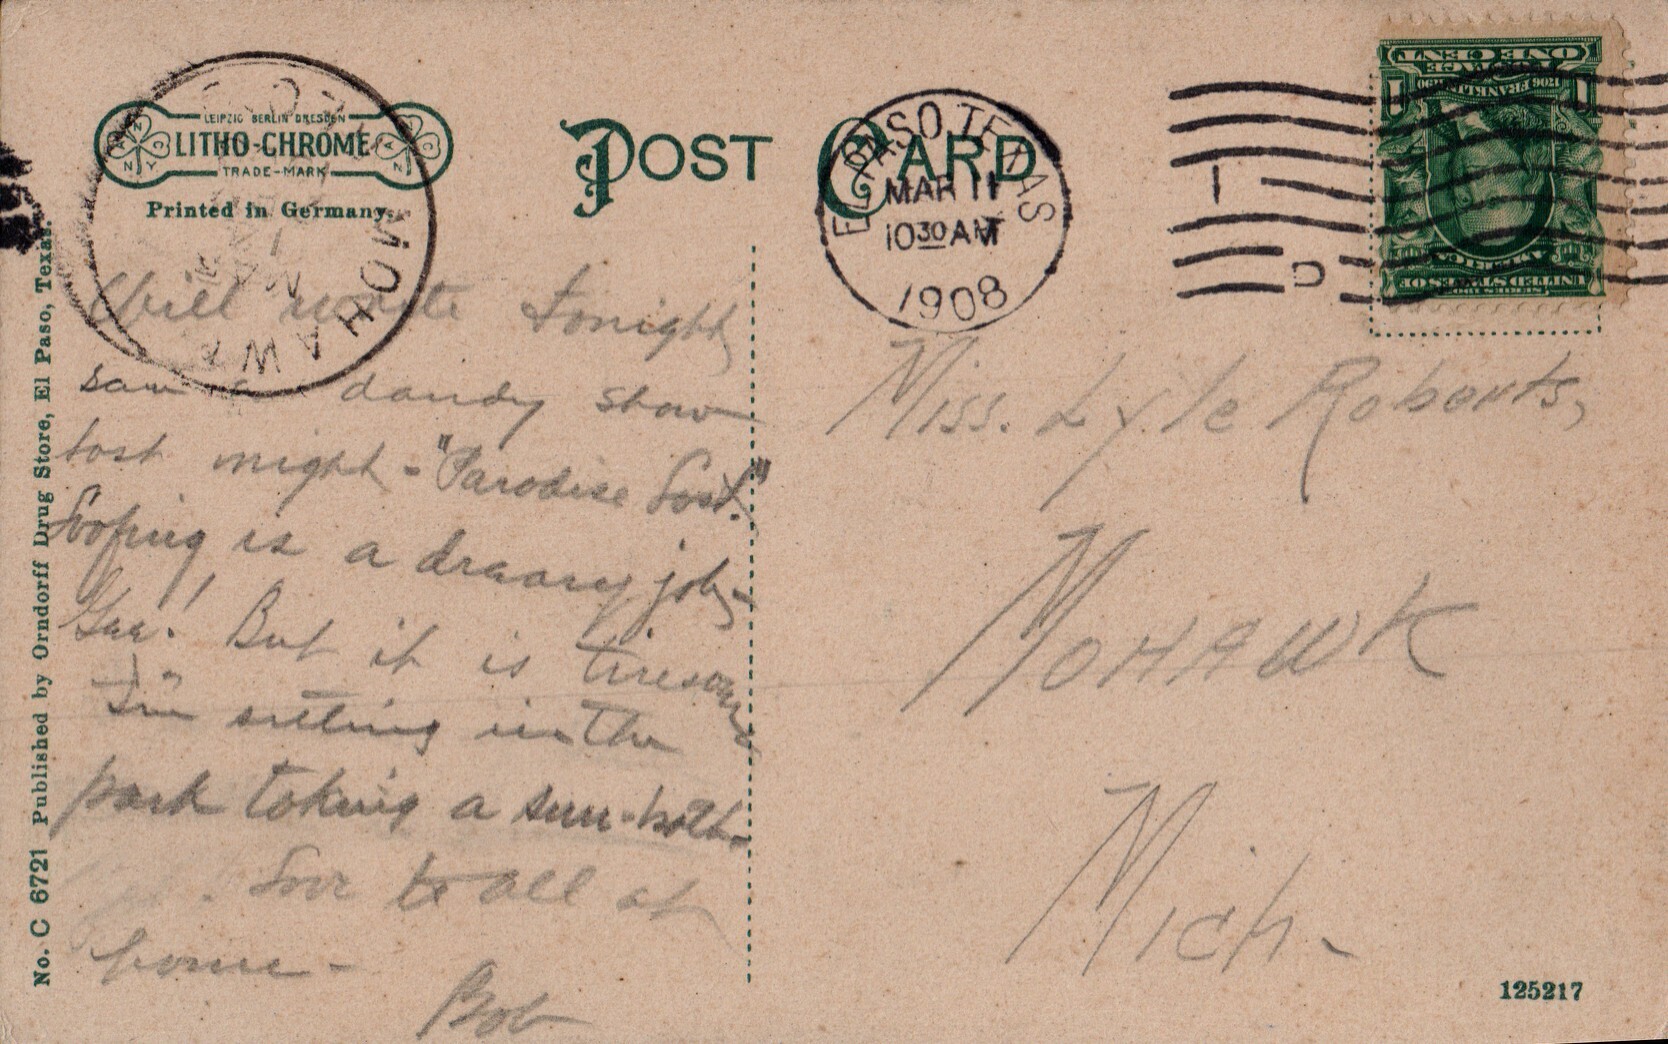 LEIPZIG BERLIN DRESDEN
LITHO-CHROME
TRADE-MARK
Printed in Germany.
POST CARD
EL PASO, TEXAS
MAR 11
10 30 AM
1908
1
D
ONE CENT
1 1
FRANKLIN
UNITED STATES OF
AMERICA
MOHAWK
Will write tonight
saw a dandy show
last night - "Paradise Lost."
Loafing is a dreary job -
Gee! But it is tiresome
I'm sitting in the
park taking a sun-bath.
Love to all at
home -
Bob
Miss. Lyle Roberts,
MOHAWK
Mich -
No. C 6721 Published by Orndorff Drug Store, El Paso, Texas.
125217